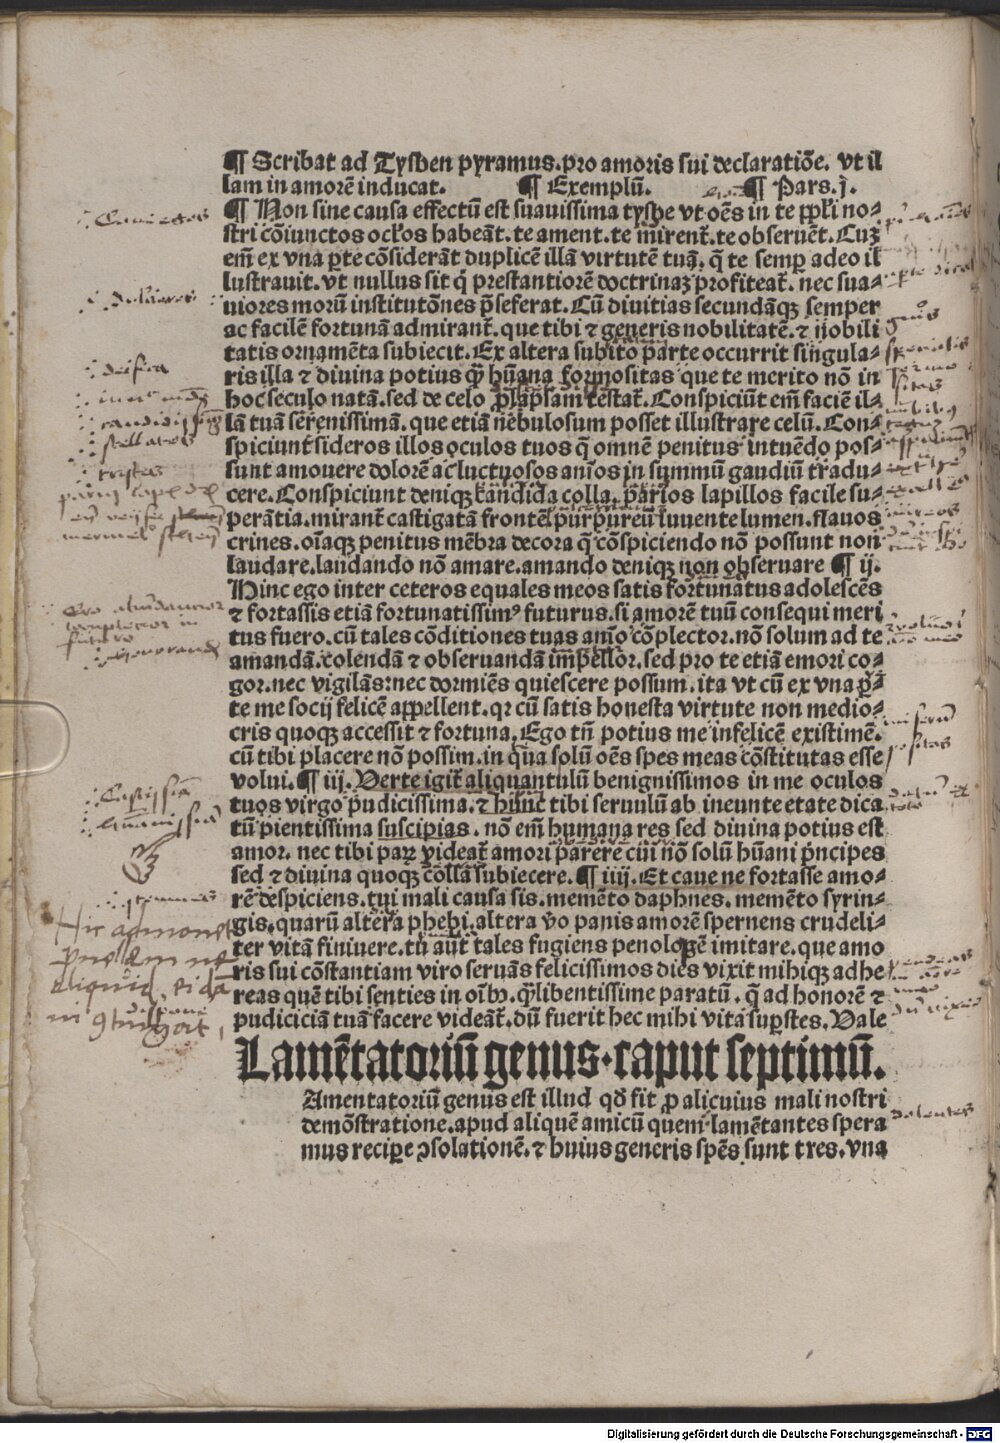 ¶ Scribat ad Tysben pyramus. pro amoris sui declaratiōe. vt il
lam in amorē inducat. ¶ Exemplū. ¶ Pars. j.
¶ Non sine causa effectū est suauissima tysbe vt oēs in te ꝓpłi no⸗
stri cōiunctos ocłos habeāt. te ament. te mirent̄. te obseruēt. Cuʒ
em̄ ex vna ꝑte cōsiderāt duplicē illā virtutē tuā. q̄ te semꝑ adeo il
lustrauit. vt nullus sit q̇ prestantiorē doctrinaʒ profiteat̄. nec sua⸗
uiores morū institutōnes p̄seferat. Cū diuitias secundāqꝫ semper
ac facilē fortunā admirant̄. que tibi ⁊ generis nobilitatē. ⁊ nobili
tatis ornamēta subiecit. Ex altera subito parte occurrit singula⸗
ris illa ⁊ diuina potius q̄ꝫ hūana formositas que te merito nō in
hoc seculo natā. sed de celo ꝓlapsam testat̄. Conspiciūt em̄ faciē il⸗
lā tuā serenissimā. que etiā nebulosum posset illustrare celū. Con⸗
spiciunt sideros illos oculos tuos q̄ omnē penitus intuēdo pos⸗
sunt amouere dolorē ac luctuosos aīos in summū gaudiū tradu⸗
cere. Conspiciunt deniqꝫ candida colla. parios lapillos facile su⸗
perātia. mirant̄ castigatā frontē purpureū iuuente lumen. flauos
crines. oīaqꝫ penitus mēbra decora q̄ cōspiciendo nō possunt non
laudare. laudando nō amare. amando deniqꝫ non obseruare ¶ ij.
Hinc ego inter ceteros equales meos satis fortunatus adolescēs
⁊ fortassis etiā fortunatissimꝰ futurus. si amorē tuū consequi meri
tus fuero. cū tales cōditiones tuas aīo cōplector. nō solum ad te
amandā. colendā ⁊ obseruandā impellor. sed pro te etiā emori co⸗
gor. nec vigilās: nec dormiēs quiescere possum. ita vt cū ex vna ꝑ⸗
te me socij felicē appellent. qꝛ cū satis honesta virtute non medio⸗
cris quoqꝫ accessit ⁊ fortuna. Ego tn̄ potius me infelicē existimē.
cū tibi placere nō possim. in qua solū oēs spes meas cōstitutas esse
volui. ¶ iij. Verte igit̄ aliquantulū benignissimos in me oculos
tuos virgo pudicissima. ⁊ hunc tibi seruulū ab ineunte etate dica
tū pientissima suscipias. nō em̄ humana res sed diuina potius est
amor. nec tibi parꝫ videat̄ amori parere cui nō solū hūani prīcipes
sed ⁊ diuina quoqꝫ colla subiecere. ¶ iiij. Et caue ne fortasse amo⸗
rē despiciens. tui mali causa sis. memēto daphnes. memēto syrin⸗
gis. quarū altera phebi. altera v̄o panis amorē spernens crudeli⸗
ter vitā finiuere. tu aūt tales fugiens penolopē imitare. que amo
ris sui cōstantiam viro seruās felicissimos dies vixit mihiqꝫ adhe
reas quē tibi senties in oībꝰ. q̄ꝫlibentissime paratū. q̄ ad honorē ⁊
pudiciciā tuā facere videat̄. dū fuerit hec mihi vita suꝑstes. Vale
Lamētatoriū genus. caput septimū.
Amentatoriū genus est illud qd̄ fit ꝓ alicuius mali nostri
demōstratione. apud aliquē amicū quem lamētantes spera
mus reciꝑe ꝯsolationē. ⁊ huius generis sp̄es sunt tres. vna
Digitalisierung gefördert durch die Deutsche Forschungsgemeinschaft - DFG